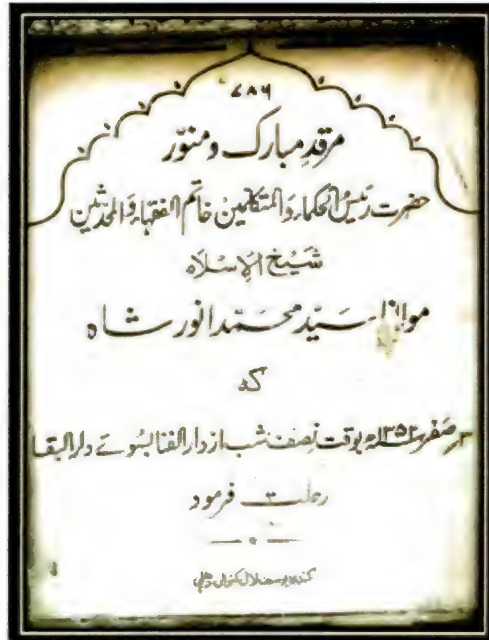 ۷۸۶
مرقدِ مبارک و منوّر
حضرت رئیس الحکماء والمتکلمین خاتم الفقہاء والمحدثین
شیخ الاسلام
مولانا سیّد محمّد انور شاہ
کہ
۳ صفر ۱۳۵۲ھ بوقت نصف شب از دار الفنا بسوئے دار البقا
رحلت فرمود